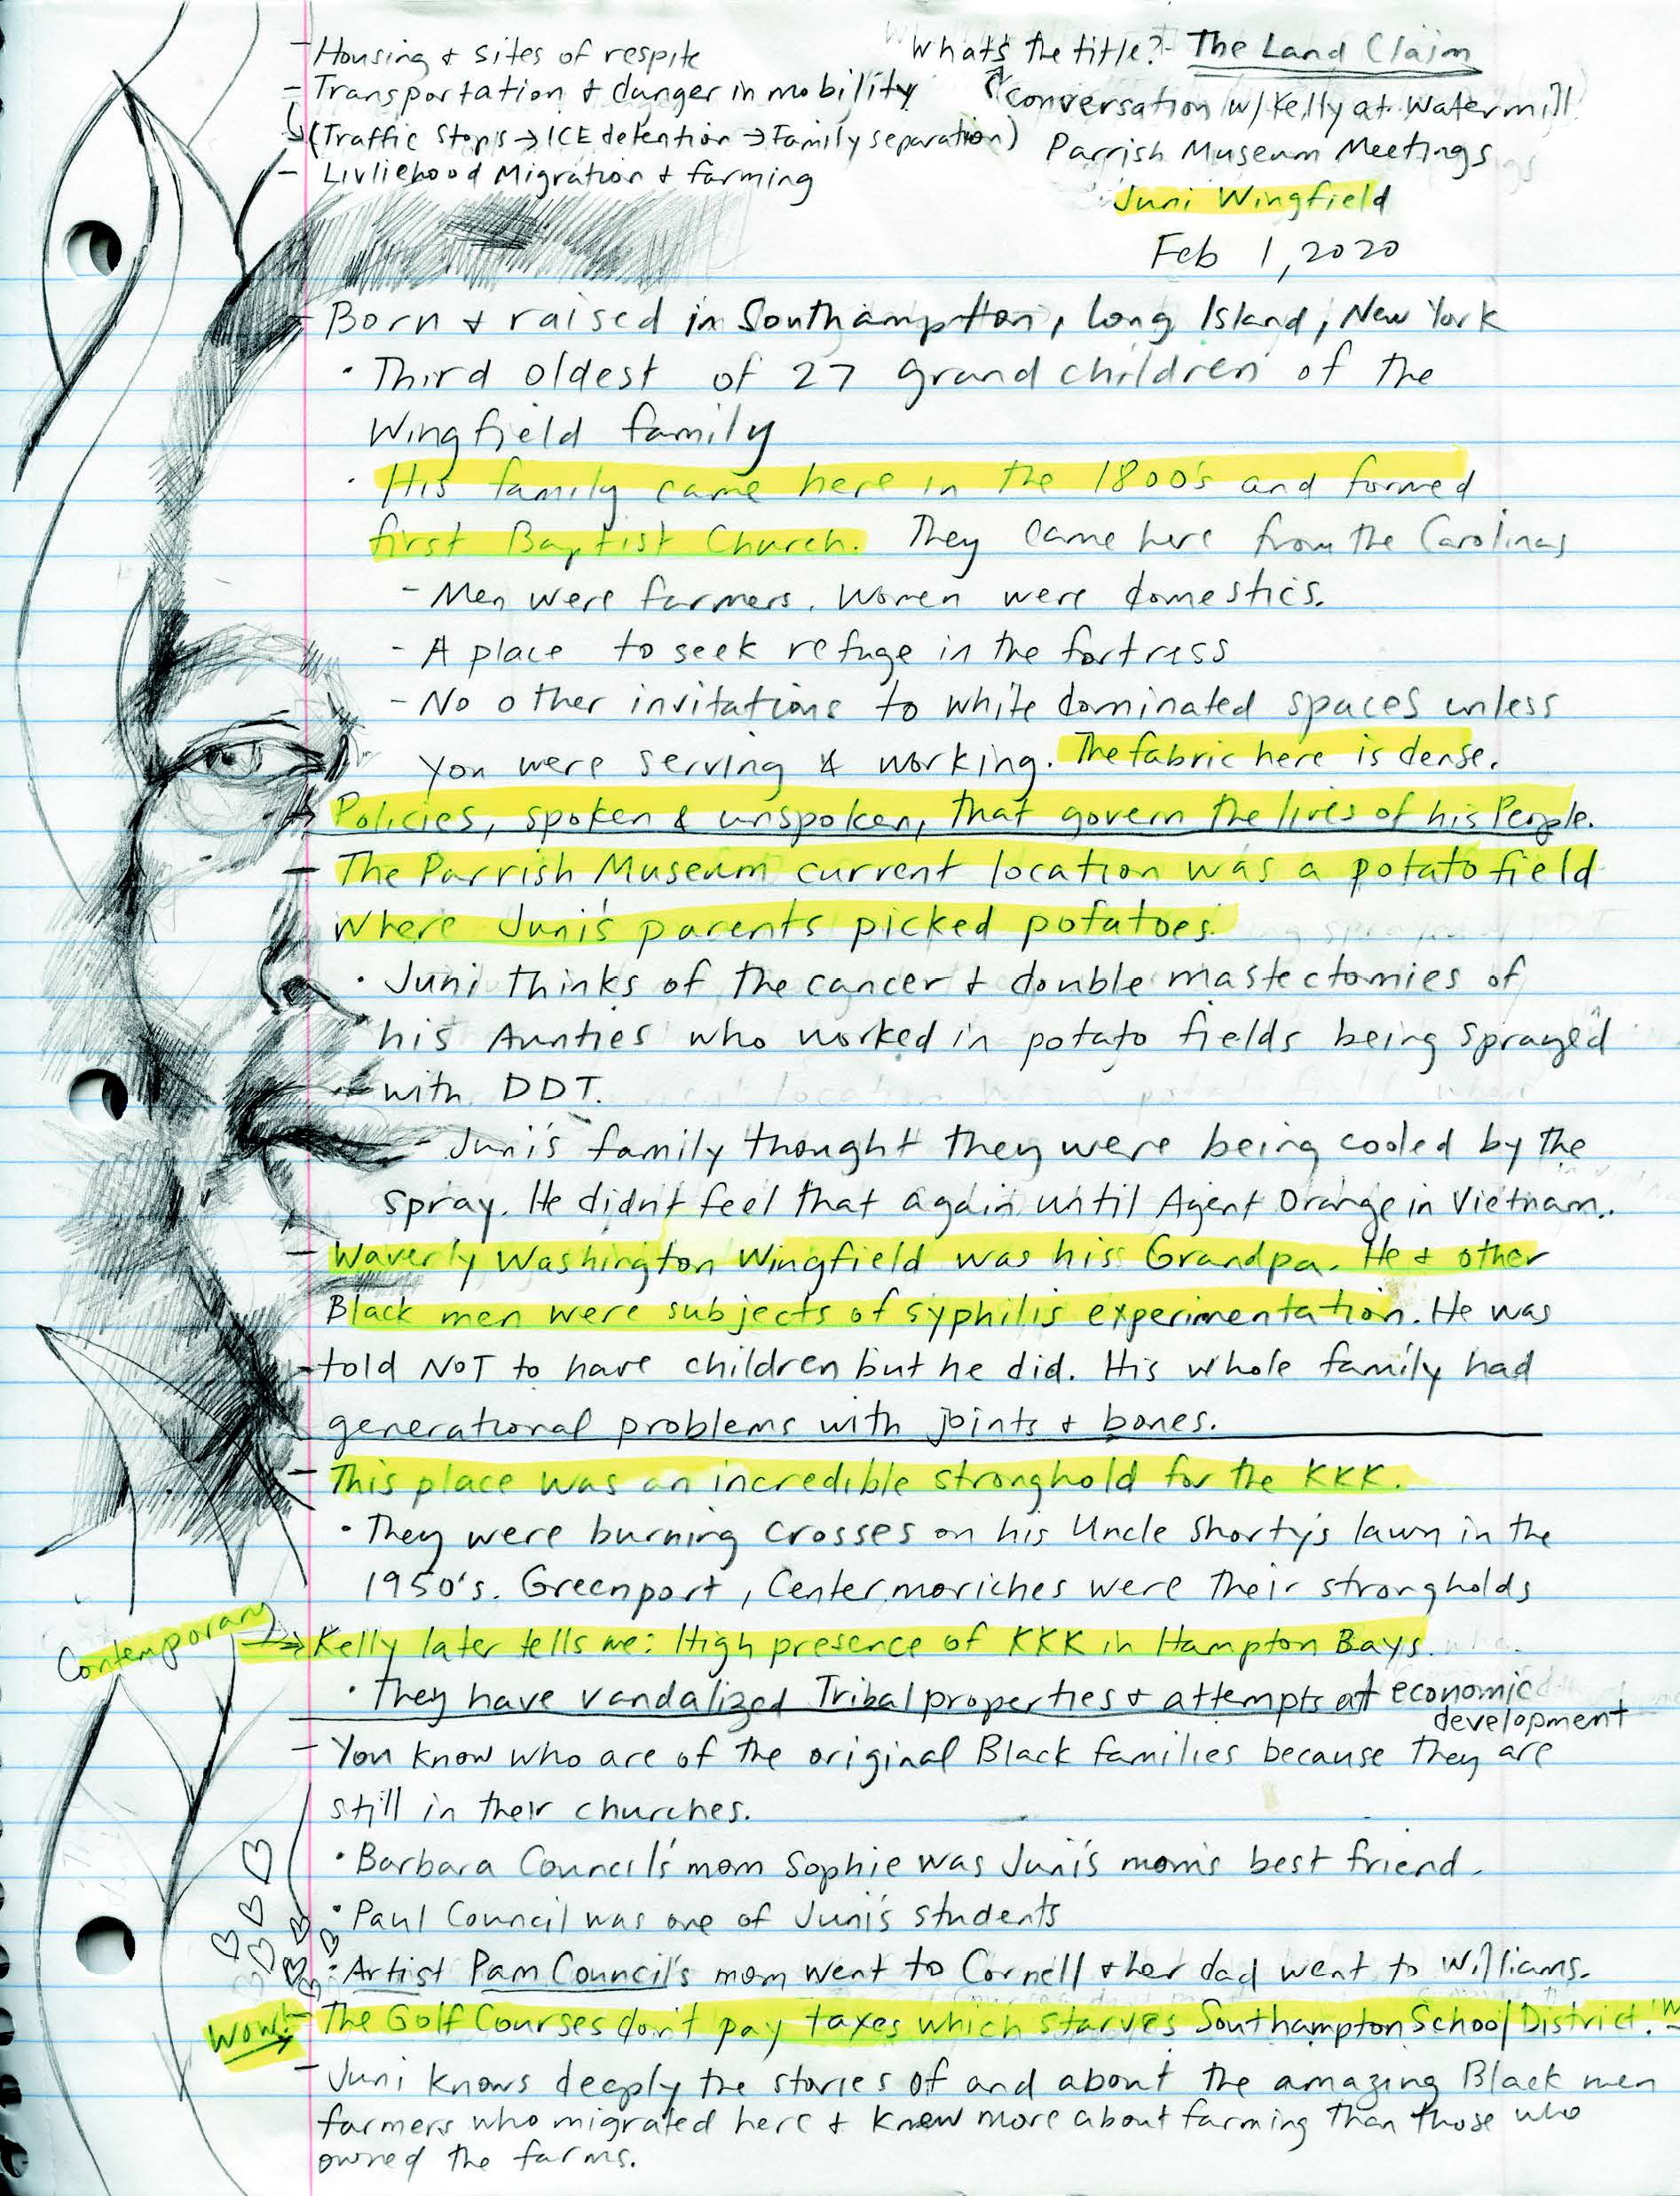 - Housing & sites of respite
- Transportation & danger in mobility
(Traffic Stops → ICE detention → Family separation)
- Livliehood Migration & farming
What's the title? - The Land Claim
conversation w/ Kelly at Watermill
Parrish Museum Meetings
Juni Wingfield
Feb 1, 2020
- Born & raised in Southampton, Long Island, New York
• Third oldest of 27 grandchildren of the
Wingfield family
• His family came here in the 1800's and formed
first Baptist Church. They came here from the Carolinas
- Men were farmers. Women were domestics.
- A place to seek refuge in the fortress
- No other invitations to white dominated spaces unless
you were serving & working. The fabric here is dense.
→ Policies, spoken & unspoken, that govern the lives of his People.
- The Parrish Museum current location was a potato field
where Juni's parents picked potatoes.
• Juni thinks of the cancer & double mastectomies of
his Aunties who worked in potato fields being sprayed
with DDT.
- Juni's family thought they were being cooled by the
spray. He didn't feel that again until Agent Orange in Vietnam.
- Waverly Washington Wingfield was his Grandpa. He & other
Black men were subjects of syphilis experimentation. He was
told NOT to have children but he did. His whole family had
generational problems with joints & bones.
- This place was an incredible stronghold for the KKK.
• They were burning crosses on his Uncle Shorty's lawn in the
1950's. Greenport, Centermoriches were their strongholds
Contemporary → Kelly later tells me: High presence of KKK in Hampton Bays.
• They have vandalized Tribal properties & attempts at economic
development
- You know who are of the original Black families because they are
still in their churches.
• Barbara Council's mom Sophie was Juni's mom's best friend.
• Paul Council was one of Juni's students
• Artist Pam Council's mom went to Cornell & her dad went to Williams.
Wow! → - The Golf Courses don't pay taxes which starves Southampton School District.
- Juni knows deeply the stories of and about the amazing Black men
farmers who migrated here & knew more about farming than those who
owned the farms.